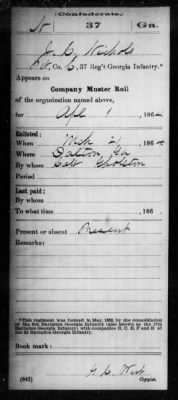 Confederate.
N 37 Ga.
J. C. Nichols
Co. C, 37 Reg't Georgia Infantry.*
Appears on
Company Muster Roll
of the organization named above,
for Apl 1, 186
Enlisted:
When Mch 21, 186
Where Dalton Ga
By whom
Period
Last paid:
By whom
To what time , 186 .
Present or absent Present
Remarks:
*This regiment was formed in May, 1863, by the consolidation
of the 9th Battalion Georgia Infantry (also known as the 17th
Battalion Georgia Infantry) with companies B, C, E, F and H of
the 3d Battalion Georgia Infantry.
Book mark:
(642) Copyist.